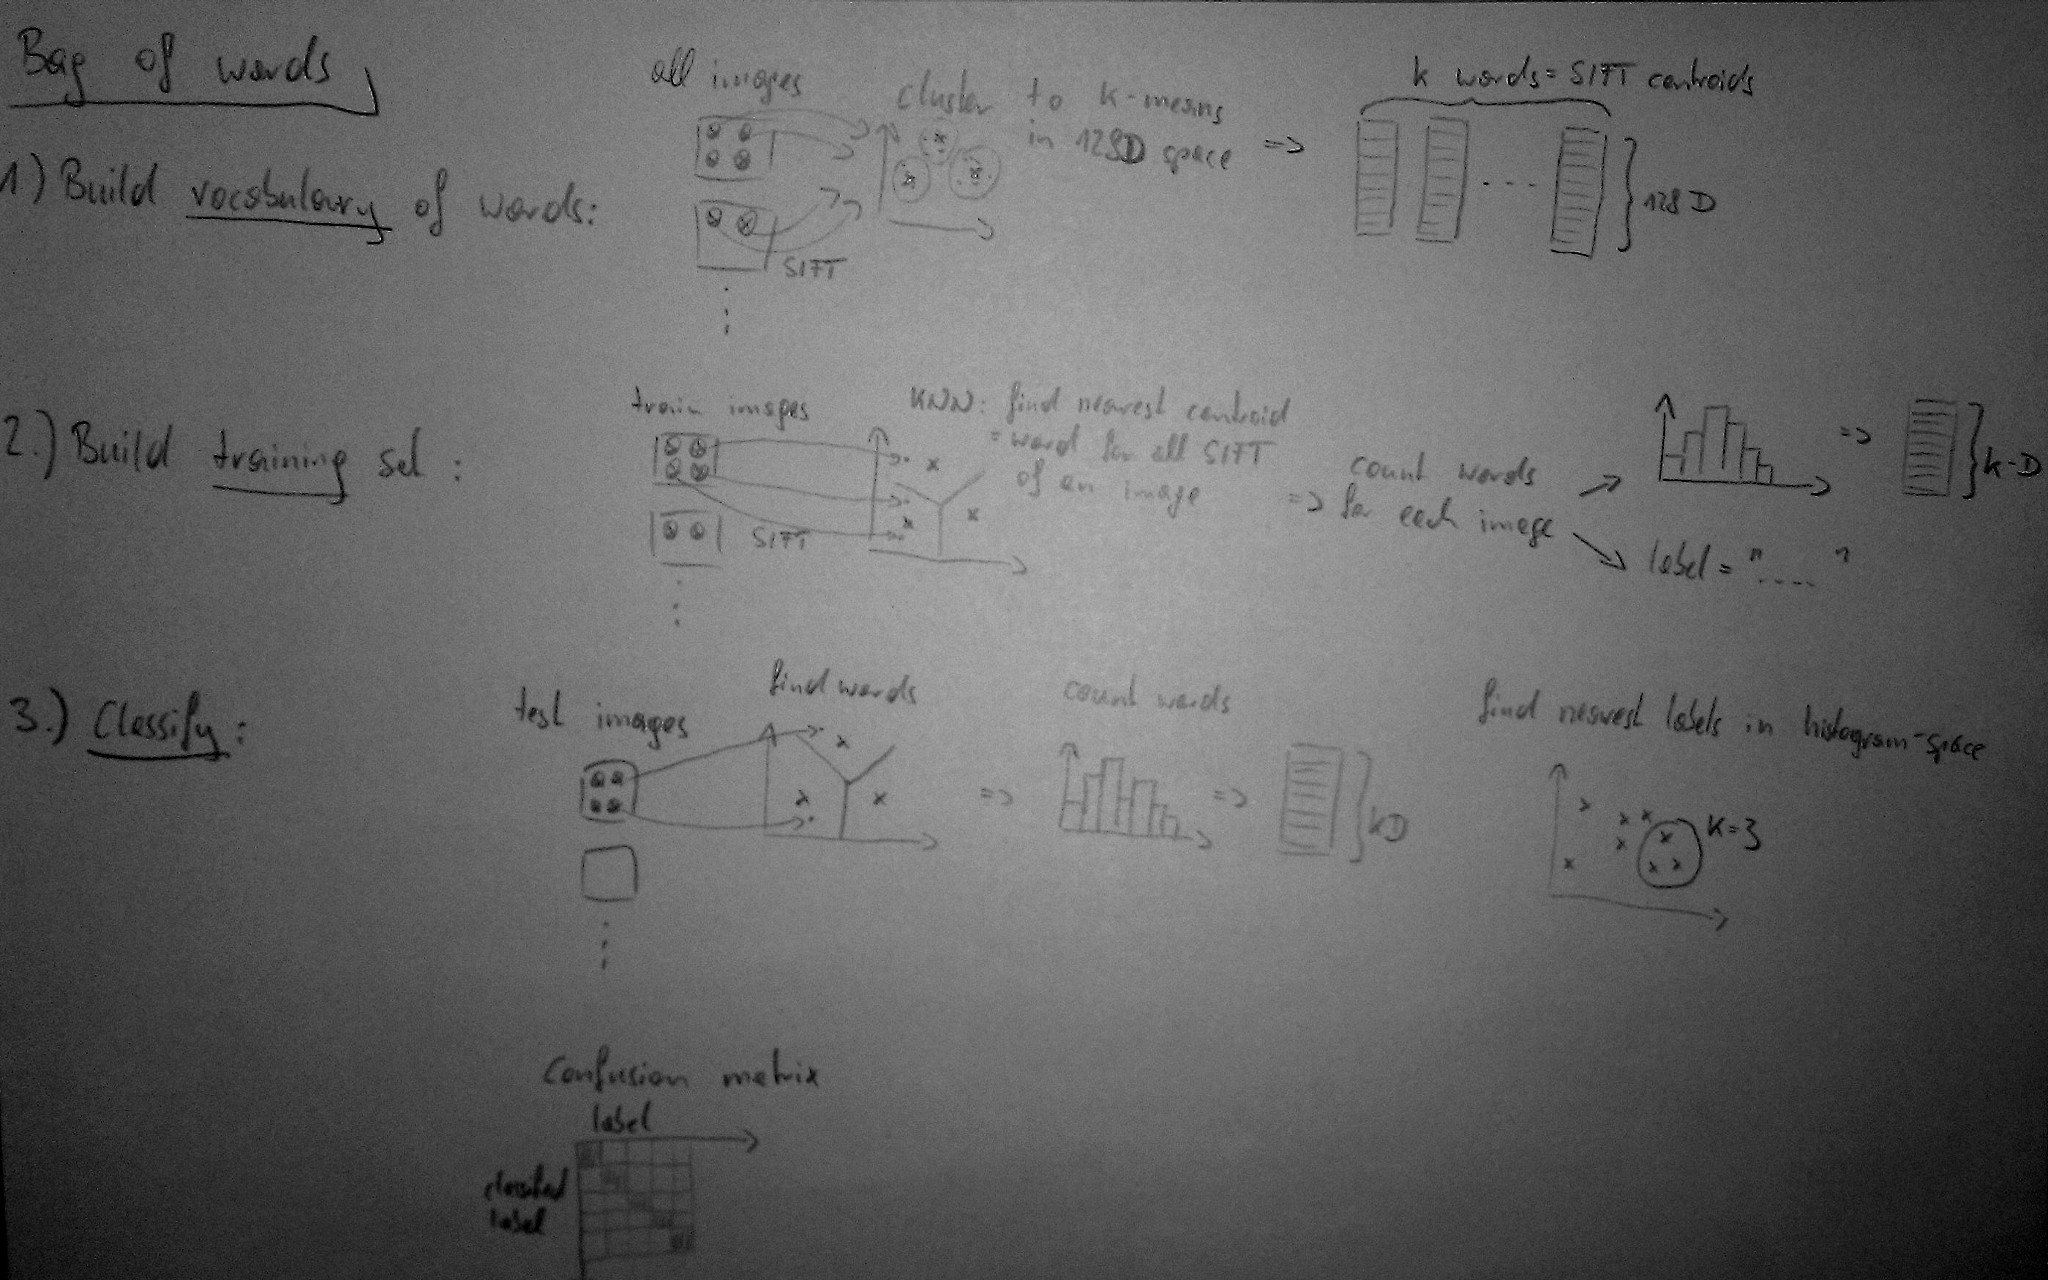 Bag of words
1) Build vocabulary of words:
all images
SIFT
cluster to k-means
in 128D space
=>
k words = SIFT centroids
128 D
2.) Build training set :
train images
SIFT
KNN: find nearest centroid
= word for all SIFT
of an image
=> count words
for each image
=>
k-D
label = "...."
3.) Classify:
test images
find words
=>
count words
=>
kD
find nearest labels in histogram-space
K=3
Confusion matrix
label
classified
label